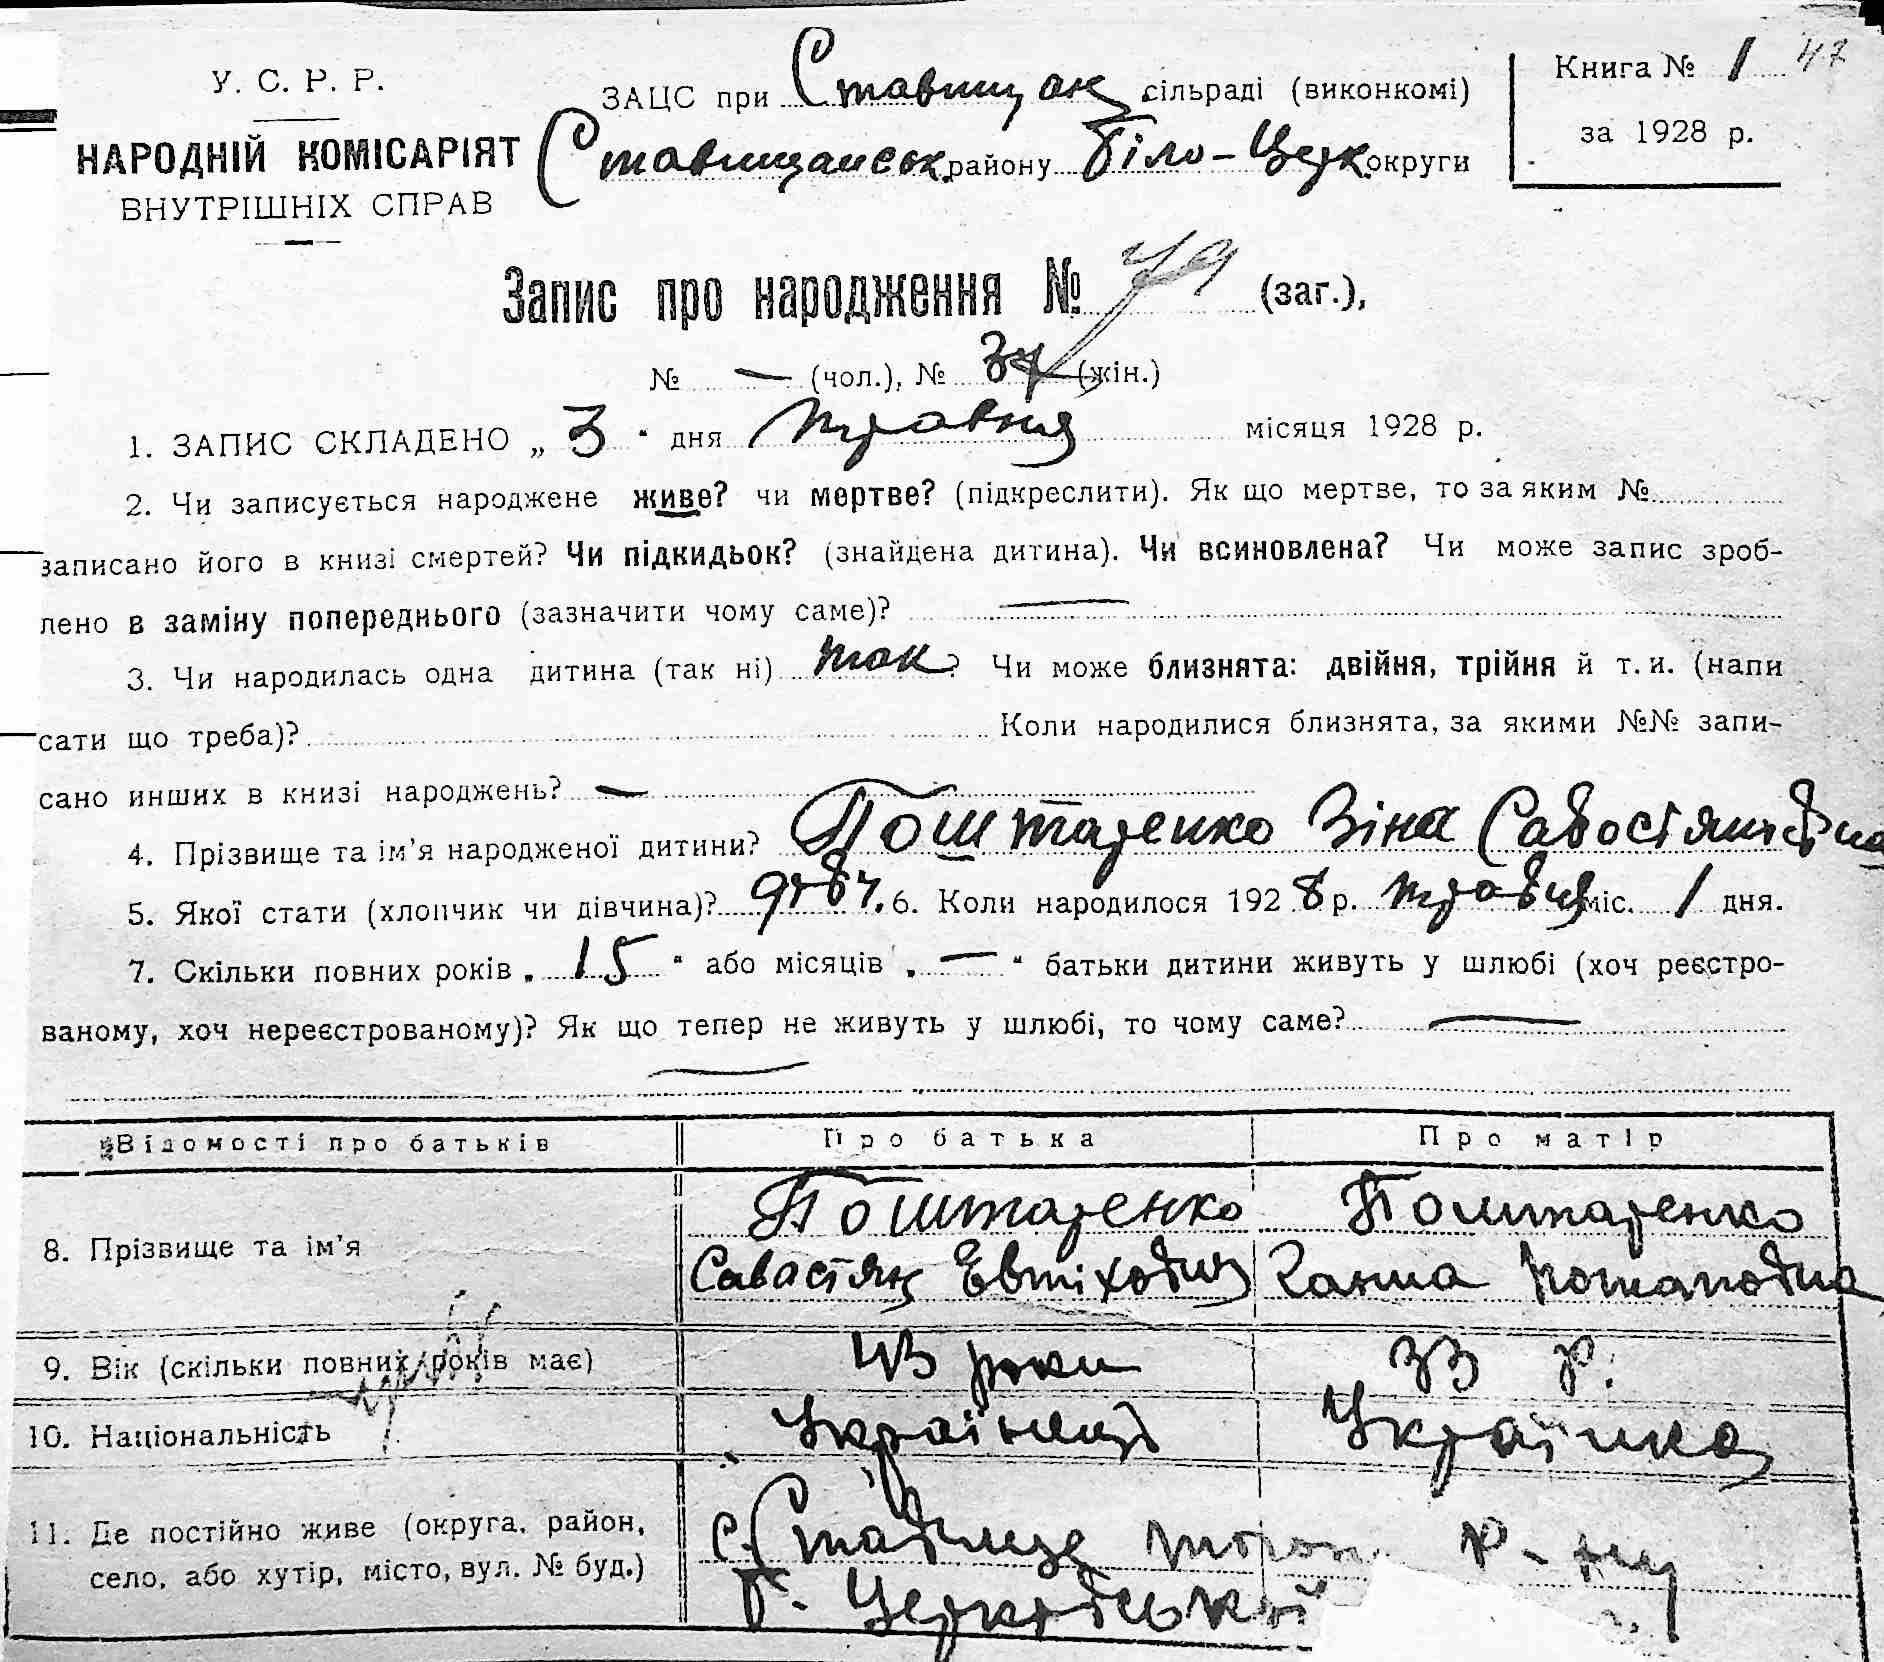 У. С. Р. Р.
НАРОДНІЙ КОМІСАРІЯТ
ВНУТРІШНІХ СПРАВ
ЗАЦС при Ставищан сільраді (виконкомі)
Ставищанськ району Біло-Церк округи
Книга № 1 47
за 1928 р.
Запис про народження № 79 (заг.),
№ — (чол.), № 37 (жін.)
1. ЗАПИС СКЛАДЕНО „ 3 " дня травня місяця 1928 р.
2. Чи записується народжене живе? чи мертве? (підкреслити). Як що мертве, то за яким №
записано його в книзі смертей? Чи підкидьок? (знайдена дитина). Чи всиновлена? Чи може запис зроб-
лено в заміну попереднього (зазначити чому саме)? —
3. Чи народилась одна дитина (так ні) так? Чи може близнята: двійня, трійня й т. и. (напи
сати що треба)? Коли народилися близнята, за якими №№ запи-
сано инших в книзі народжень? —
4. Прізвище та ім'я народженої дитини? Поштаренко Зіна Савостянівна
5. Якої стати (хлопчик чи дівчина)? дівч. 6. Коли народилося 1928 р. травня міс. 1 дня.
7. Скільки повних років „ 15 " або місяців „ — " батьки дитини живуть у шлюбі (хоч реєстро-
ваному, хоч нереєстрованому)? Як що тепер не живуть у шлюбі, то чому саме? —
—
Відомості про батьків Про батька Про матір
8. Прізвище та ім'я Поштаренко Савастян Евтіхович Поштаренко Ганна Потаповна
9. Вік (скільки повних років має) 43 роки 33 р.
10. Національність Українець Українка
11. Де постійно живе (округа, район,
село, або хутір, місто, вул. № буд.)
с. Ставище р-ну
Б. Церківської